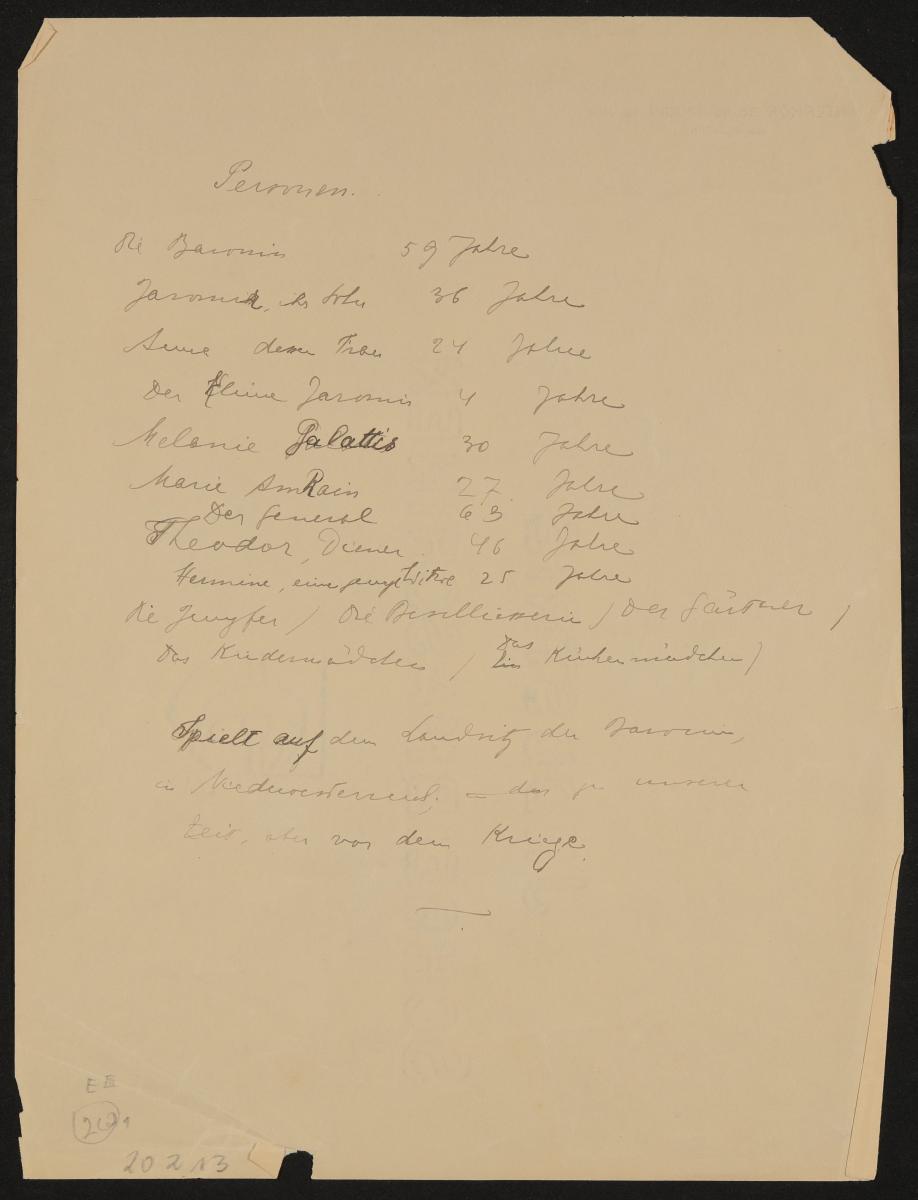 Personen.
Die Baronin 59 Jahre
Jaromir, ihr Sohn 36 Jahre
Anna deren Frau 24 Jahre
Der Kleine Jaromir 4 Jahre
Melanie Galattis 30 Jahre
Marie Am Rain 27. Jahre
Der General 63 Jahre
Theodor, Diener. 46 Jahre
Hermine, eine junge Witwe 25 Jahre
Die Jungfer / Die Beschliesserin / Der Gärtner /
Das Kindermädchen / Das Küchenmädchen /
Spielt auf dem Landsitz der Baronin,
in Niederoesterreich; zu unserer
Zeit, aber vor dem Kriege.
E III
20 2 13